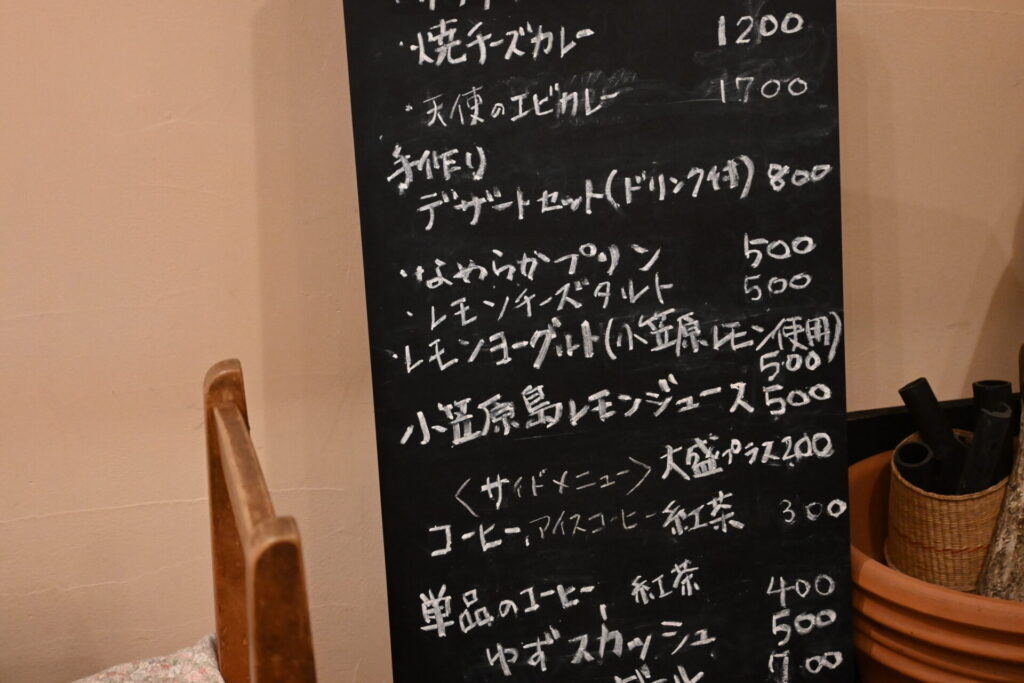 ・焼チーズカレー 1200
・天使のエビカレー 1700
手作り
デザートセット(ドリンク付) 800
・なめらかプリン 500
・レモンチーズタルト 500
・レモンヨーグルト(小笠原レモン使用)
500
小笠原島レモンジュース 500
<サイドメニュー> 大盛プラス200
コーヒー,アイスコーヒー 紅茶 300
単品のコーヒー 紅茶 400
ゆずスカッシュ 500
ビール 700